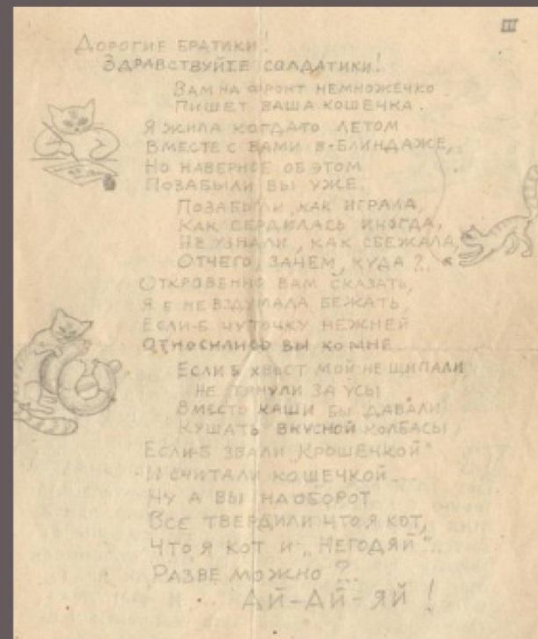 III
ДОРОГИЕ БРАТИКИ!
ЗДРАВСТВУЙТЕ САЛДАТИКИ!
ВАМ НА ФРОНТ НЕМНОЖЕЧКО
ПИШЕТ ВАША КОШЕЧКА.
Я ЖИЛА КОГДАТО ЛЕТОМ
ВМЕСТЕ С ВАМИ В-БЛИНДАЖЕ,
НО НАВЕРНОЕ ОБ ЭТОМ
ПОЗАБЫЛИ ВЫ УЖЕ.
ПОЗАБЫЛИ, КАК ИГРАЛА,
КАК СЕРДИЛАСЬ ИНОГДА,
НЕ УЗНАЛИ, КАК СБЕЖАЛА,
ОТЧЕГО, ЗАЧЕМ, КУДА?..
ОТКРОВЕННО ВАМ СКАЗАТЬ,
Я Б НЕ ВЗДУМАЛА БЕЖАТЬ,
ЕСЛИ-Б ЧУТОЧКУ НЕЖНЕЙ
ОТНОСИЛИСЬ ВЫ КО МНЕ
ЕСЛИ Б ХВОСТ МОЙ НЕ ЩИПАЛИ
НЕ ТЯНУЛИ ЗА УСЫ
ВМЕСТО КАШИ БЫ ДАВАЛИ
КУШАТЬ ВКУСНОЙ КОЛБАСЫ
ЕСЛИ-Б ЗВАЛИ „КРОШЕЧКОЙ"
И СЧИТАЛИ КОШЕЧКОЙ...
НУ А ВЫ НАОБОРОТ
ВСЕ ТВЕРДИЛИ ЧТО Я КОТ,
ЧТО Я КОТ И „НЕГОДЯЙ"..
РАЗВЕ МОЖНО?..
АЙ-АЙ-ЯЙ!